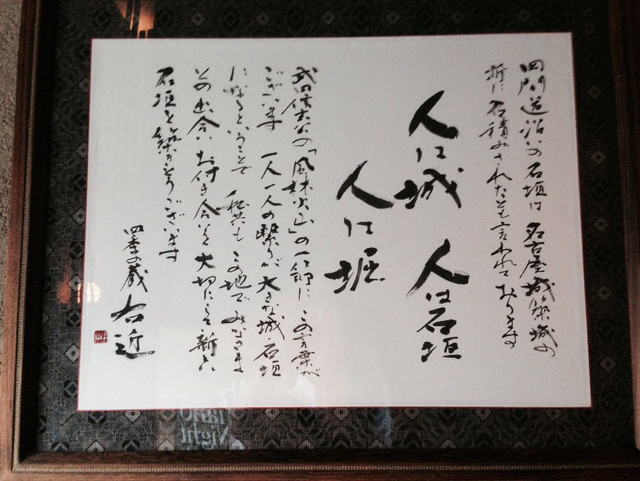 四間道沿いの石垣は 名古屋城築城の
折に石積みされたとも言われております
人は城 人は石垣
人は堀
武田信玄公の「風林火山」の一節に この言葉が
ございます 一人一人の繋りが大きな城・石垣
になるということで 私共も この地で みなさま
との出会い お付き合いを大切にして 新たな
石垣を築きとうございます
四季の蔵 右近
Night